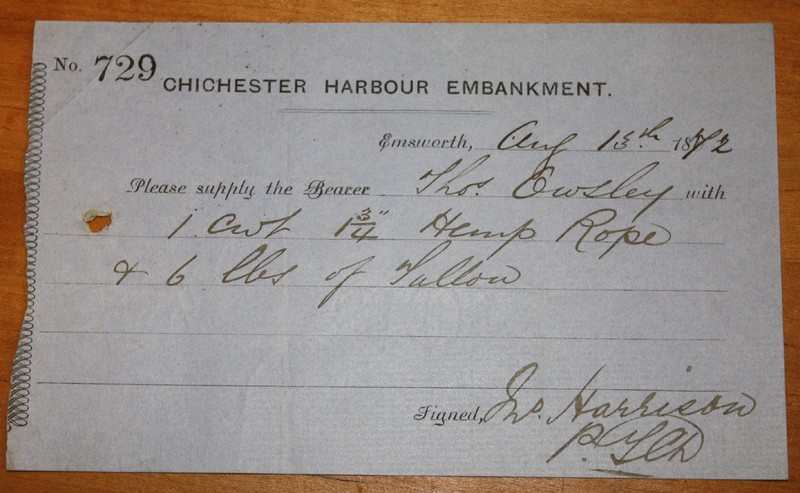 No. 729
CHICHESTER HARBOUR EMBANKMENT.
Emsworth, Aug 13th. 1872
Please supply the Bearer Thos. Ewsley with
1 cwt 1 3/4" Hemp Rope
& 6 lbs of Tallow
Signed, Jno. Harrison
P.